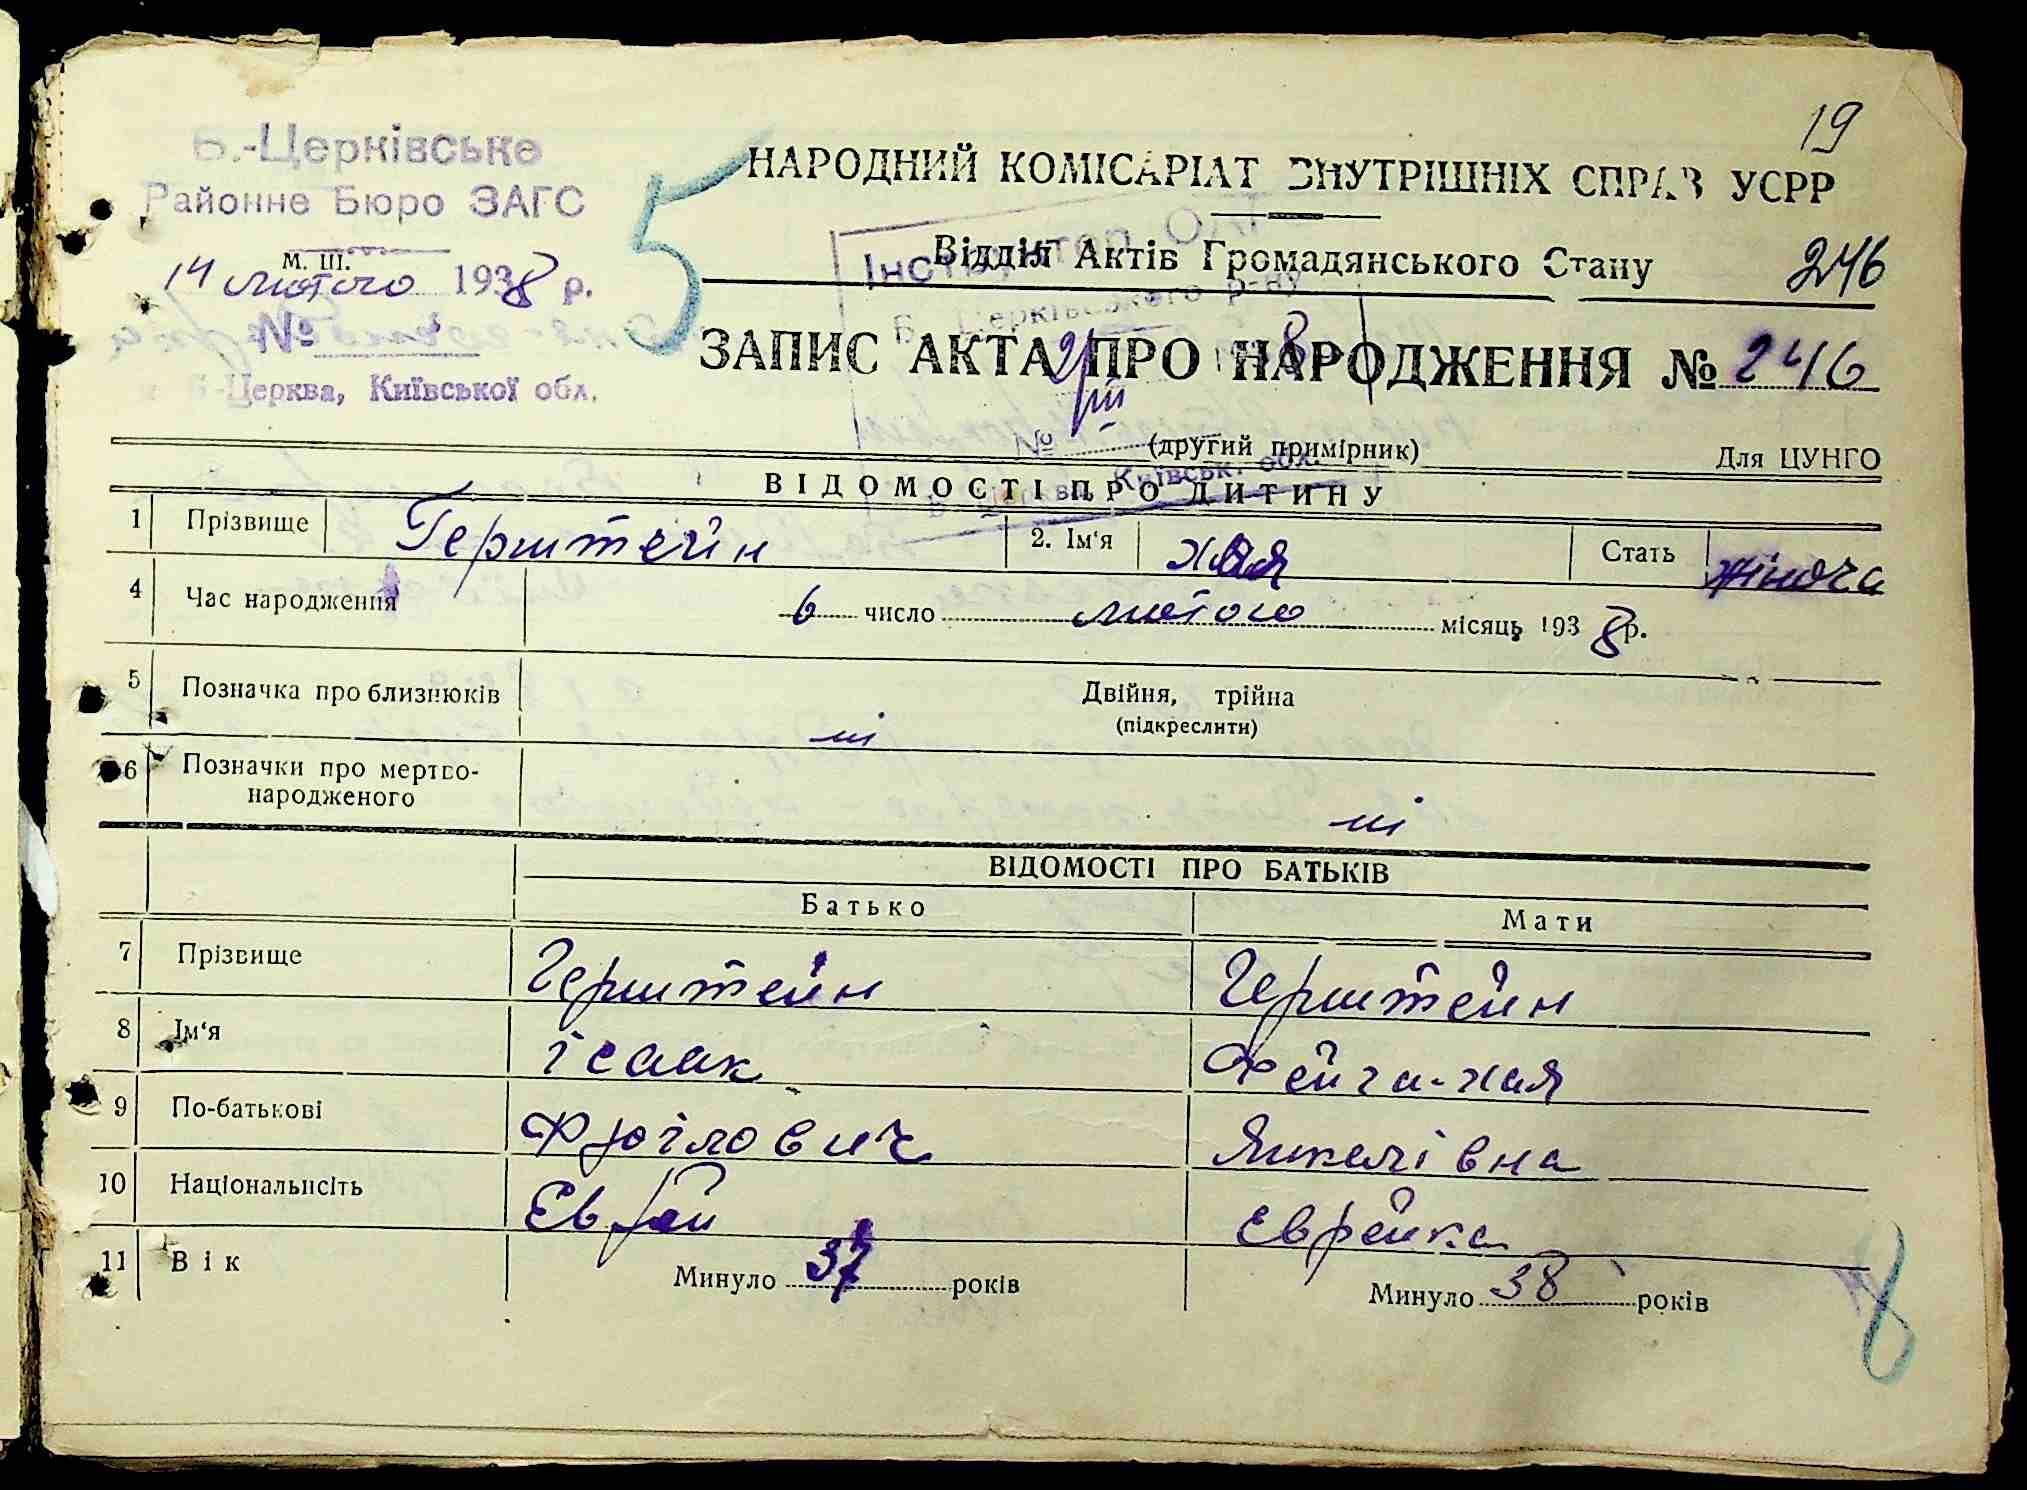 19
Б.-Церківське
Районне Бюро ЗАГС
М. Ш.
14 лютого 1938 р.
№
Б-Церква, Київської обл.
5
НАРОДНИЙ КОМІСАРІАТ ВНУТРІШНІХ СПРАВ УСРР
Відділ Актів Громадянського Стану 246
Інструктор
Б. Церківського р-ну
ЗАПИС АКТА ПРО НАРОДЖЕННЯ № 246
2/III 8
№ (другий примірник) Для ЦУНГО
Київськ. обл.
ВІДОМОСТІ ПРО ДИТИНУ
1 Прізвище Герштейн 2. Ім‘я Хая Стать жіноча
4 Час народження 6 число лютого місяць 1938 р.
5 Позначка про близнюків Двійня, трійна
(підкреслити)
ні
6 Позначки про мертво-
народженого
ні
ВІДОМОСТІ ПРО БАТЬКІВ
Батько Мати
7 Прізвище Герштейн Герштейн
8 Ім‘я Ісаак Фейга-Хая
9 По-батькові Фроїлович Янкелівна
10 Національність Єврей Єврейка
11 Вік Минуло 37 років Минуло 38 років
8